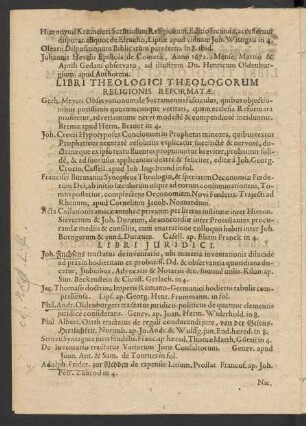 Hieronymi Kromeieri Scrutinium Religionum, Editio secunda, accesserunt
disputat. aliquot de Elencho, Lipsiæ apud viduam Joh. Wittigau in 4.
Olearii Disputationum Biblicarum pars tertia in 8. ibid.
Johannis Hevelii Epistola de Cometâ, Anno 1672. Mense Martio &
Aprili Gedani observato, ad illustrem Dn. Henricum Oldenburgium
apud Authorem.
LIBRI THEOLOGICI THEOLOGORUM
RELIGIONIS REFORMATÆ.
Gerh. Meyeri Observationum de Sacramentis fasciculus, quibus objectionibus
pontificiis quorumcunque veritati, quam ecclesia Reformata
profitetur, adversantium nervi modestè & compendiosè inciduntur.
Bremæ apud Herm. Brauer in 4.
Joh. Crocii Hypotyposes Concionum in Prophetas minores, quibus textus
Propheticus accuratè resolutus explicatur succinctè & nervosè, doctrinæque
ex ipso textu fluentes proponuntur breviter, probantur solidè,
& ad suos usus applicantur dextrè & feliciter, editæ à Joh. Georg.
Crocio, Cassell. apud Joh. Ingebrand in fol.
Francisci Burmanni Synopseos Theologiæ, & speciatim Oeconomiæ Fœderum
Dei, ab initio sæculorum usque ad eorum consummationem, Tomus
posterior, complectens Oeconomiam Novi Fœderis. Trajecti ad
Rhenum, apud Cornelium Jacob. Noenardum.
Acta Collationis amicæ antehac privatim per literas institutæ inter Hieron.
Sieverium & Joh. Duræum, de concordiæ inter Protestantes procurandæ
mediis & consiliis, cum enarratione colloquii habiti inter Joh.
Botngerum & eund. Duræum. Cassell. ap. Eliam Franck in 4.
LIBRI JURIDICI.
Joh. tractatus de inventario, ubi materia inventationis dilucidè
ad praxin hodiernam et proponitur. Del. & observationia quotidiana docetur,
Judicibus, Advocatis & Notariis &c. summè utilis. Kilon. ap.
Sim. Beckenstein & Christi. Gerlach, in 4.
Jac. Thomasii doctrina Imperii Romano-Germanici hodierni tabulis comprehensa.
Lips. ap. Georg. Henr. Frommann. in fol.
Phil. Andr. Oldenburgeri tractatus juridico-politicus de quatuor elementis
juridicè consideratis. Genev. ap. Joan. Herm. Widerhold. in 8.
Phil. Albert. Orth tractatus de regali conducendi jure, von der Geleits-
Gerechtigkeit, Norimb. ap. Jo. Andr. & Wolffg. jun. End. hæred. in 8.
Struvii Syntagma juris feudalis. Franc. ap. hæred. Thomæ Matth. Götzii in 4.
De Inventario tractatus Variorum Juris Consultorum. Genev. apud
Joan. Ant. & Sam. de Tournes in fol.
Adolph Frider. zur Nedden de expensis Litium, Prostat Francof. ap. Joh.
Petr. Zubrod in 4.
Nic.